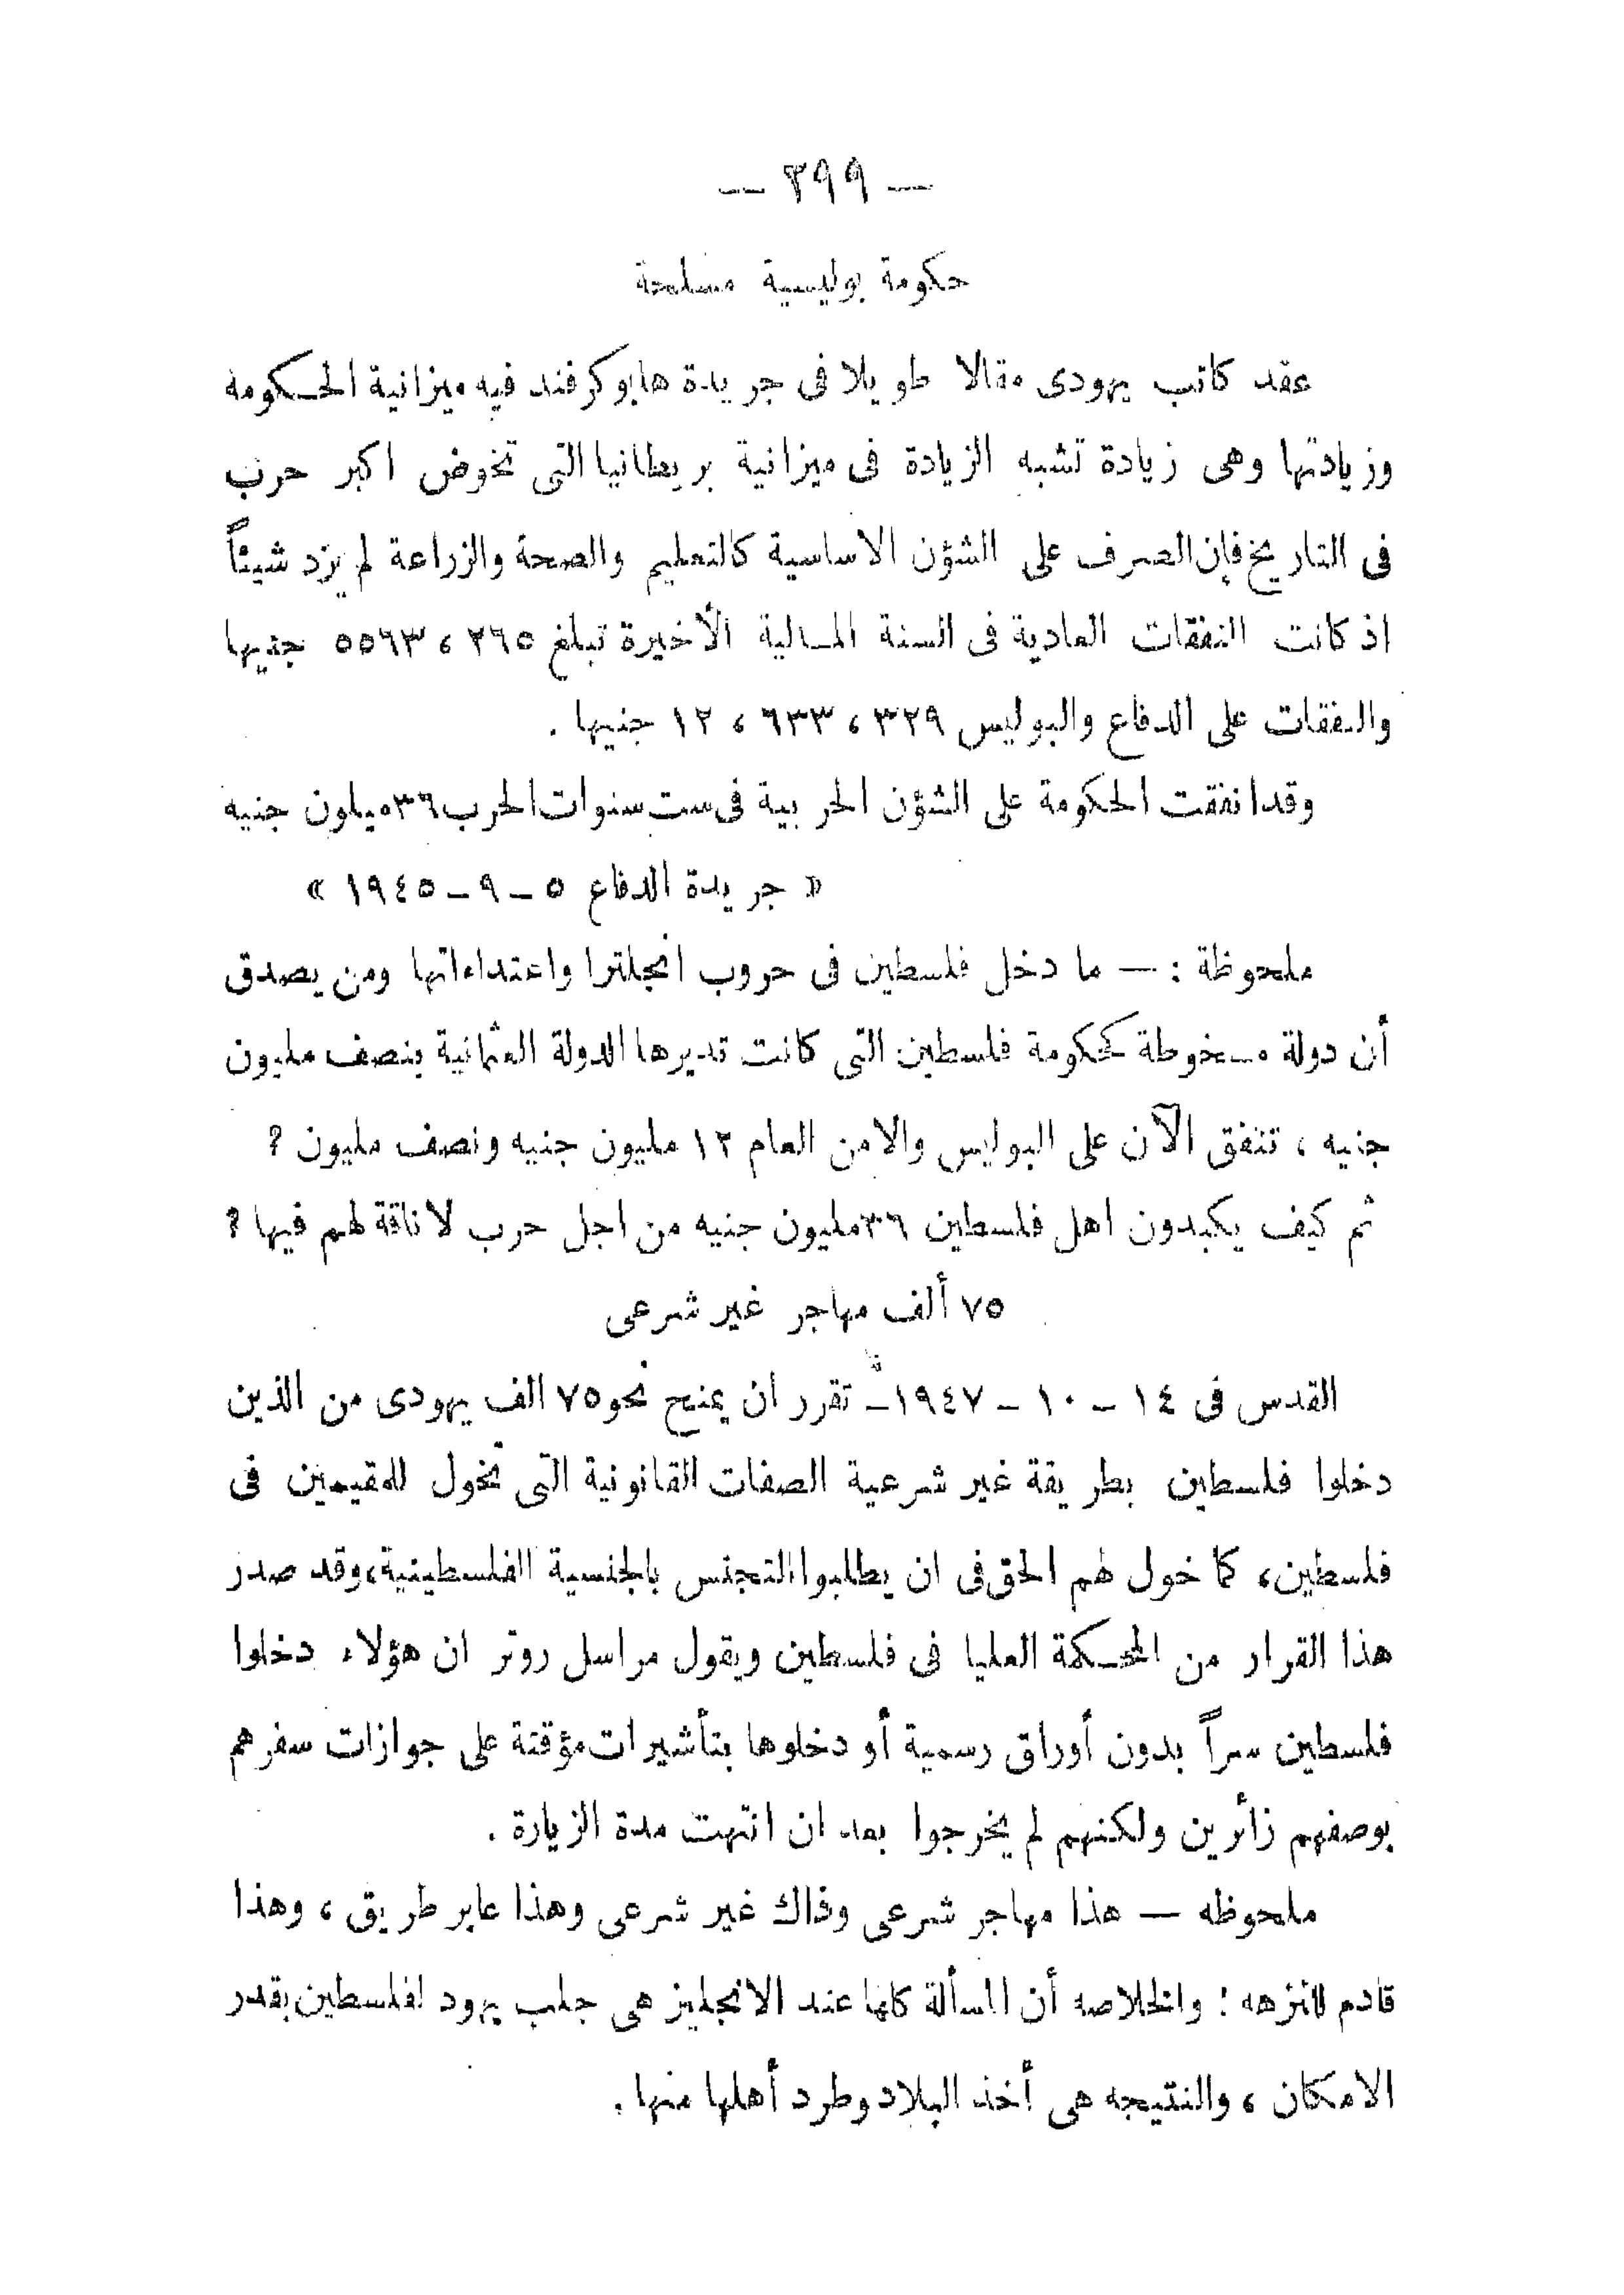 — ٣٩٩ —
حكومة بوليسية مسلحة
عقد كاتب يهودى مقالا طويلا فى جريدة هابوكر فند فيه ميزانية الحكومة
وزيادتها وهى زيادة تشبه الزيادة فى ميزانية بريطانيا التى تخوض اكبر حرب
فى التاريخ فإن الصرف على الشؤن الاساسية كالتعليم والصحة والزراعة لم يزد شيئاً
اذ كانت النفقات العادية فى السنة المالية الأخيرة تبلغ ٢٦٥ ، ٥٥٦٣ جنيها
والنفقات على الدفاع والبوليس ٣٢٩ ، ٦٣٣ ، ١٢ جنيها .
وقد انفقت الحكومة على الشؤن الحربية فى ست سنوات الحرب ٣٦ ميلون جنيه
« جريدة الدفاع ٥ – ٩ – ١٩٤٥ »
ملحوظة : — ما دخل فلسطين فى حروب انجلترا واعتداءاتها ومن يصدق
أن دولة مسخوطة كحكومة فلسطين التى كانت تديرها الدولة العثمانية بنصف مليون
جنيه ، تنفق الآن على البوليس والامن العام ١٢ مليون جنيه ونصف مليون ؟
ثم كيف يكبدون اهل فلسطين ٣٦ مليون جنيه من اجل حرب لا ناقة لهم فيها ؟
٧٥ ألف مهاجر غير شرعى
القدس فى ١٤ – ١٠ – ١٩٤٧ – تقرر ان يمنح نحو ٧٥ الف يهودى من الذين
دخلوا فلسطين بطريقة غير شرعية الصفات القانونية التى تخول للمقيمين فى
فلسطين، كما خول لهم الحق فى ان يطلبوا التجنس بالجنسية الفلسطينية، وقد صدر
هذا القرار من المحكمة العليا فى فلسطين ويقول مراسل روتر ان هؤلاء دخلوا
فلسطين سراً بدون أوراق رسمية أو دخلوها بتأشيرات مؤقتة على جوازات سفرهم
بوصفهم زأرين ولكنهم لم يخرجوا بعد ان انتهت مدة الزيارة .
ملحوظه — هذا مهاجر شرعى وذاك غير شرعى وهذا عابر طريق ، وهذا
قادم للنزهه : والخلاصه أن المسألة كلها عند الانجليز هى جلب يهود لفلسطين بقدر
الامكان ، والنتيجه هى أخذ البلاد وطرد أهلها منها .